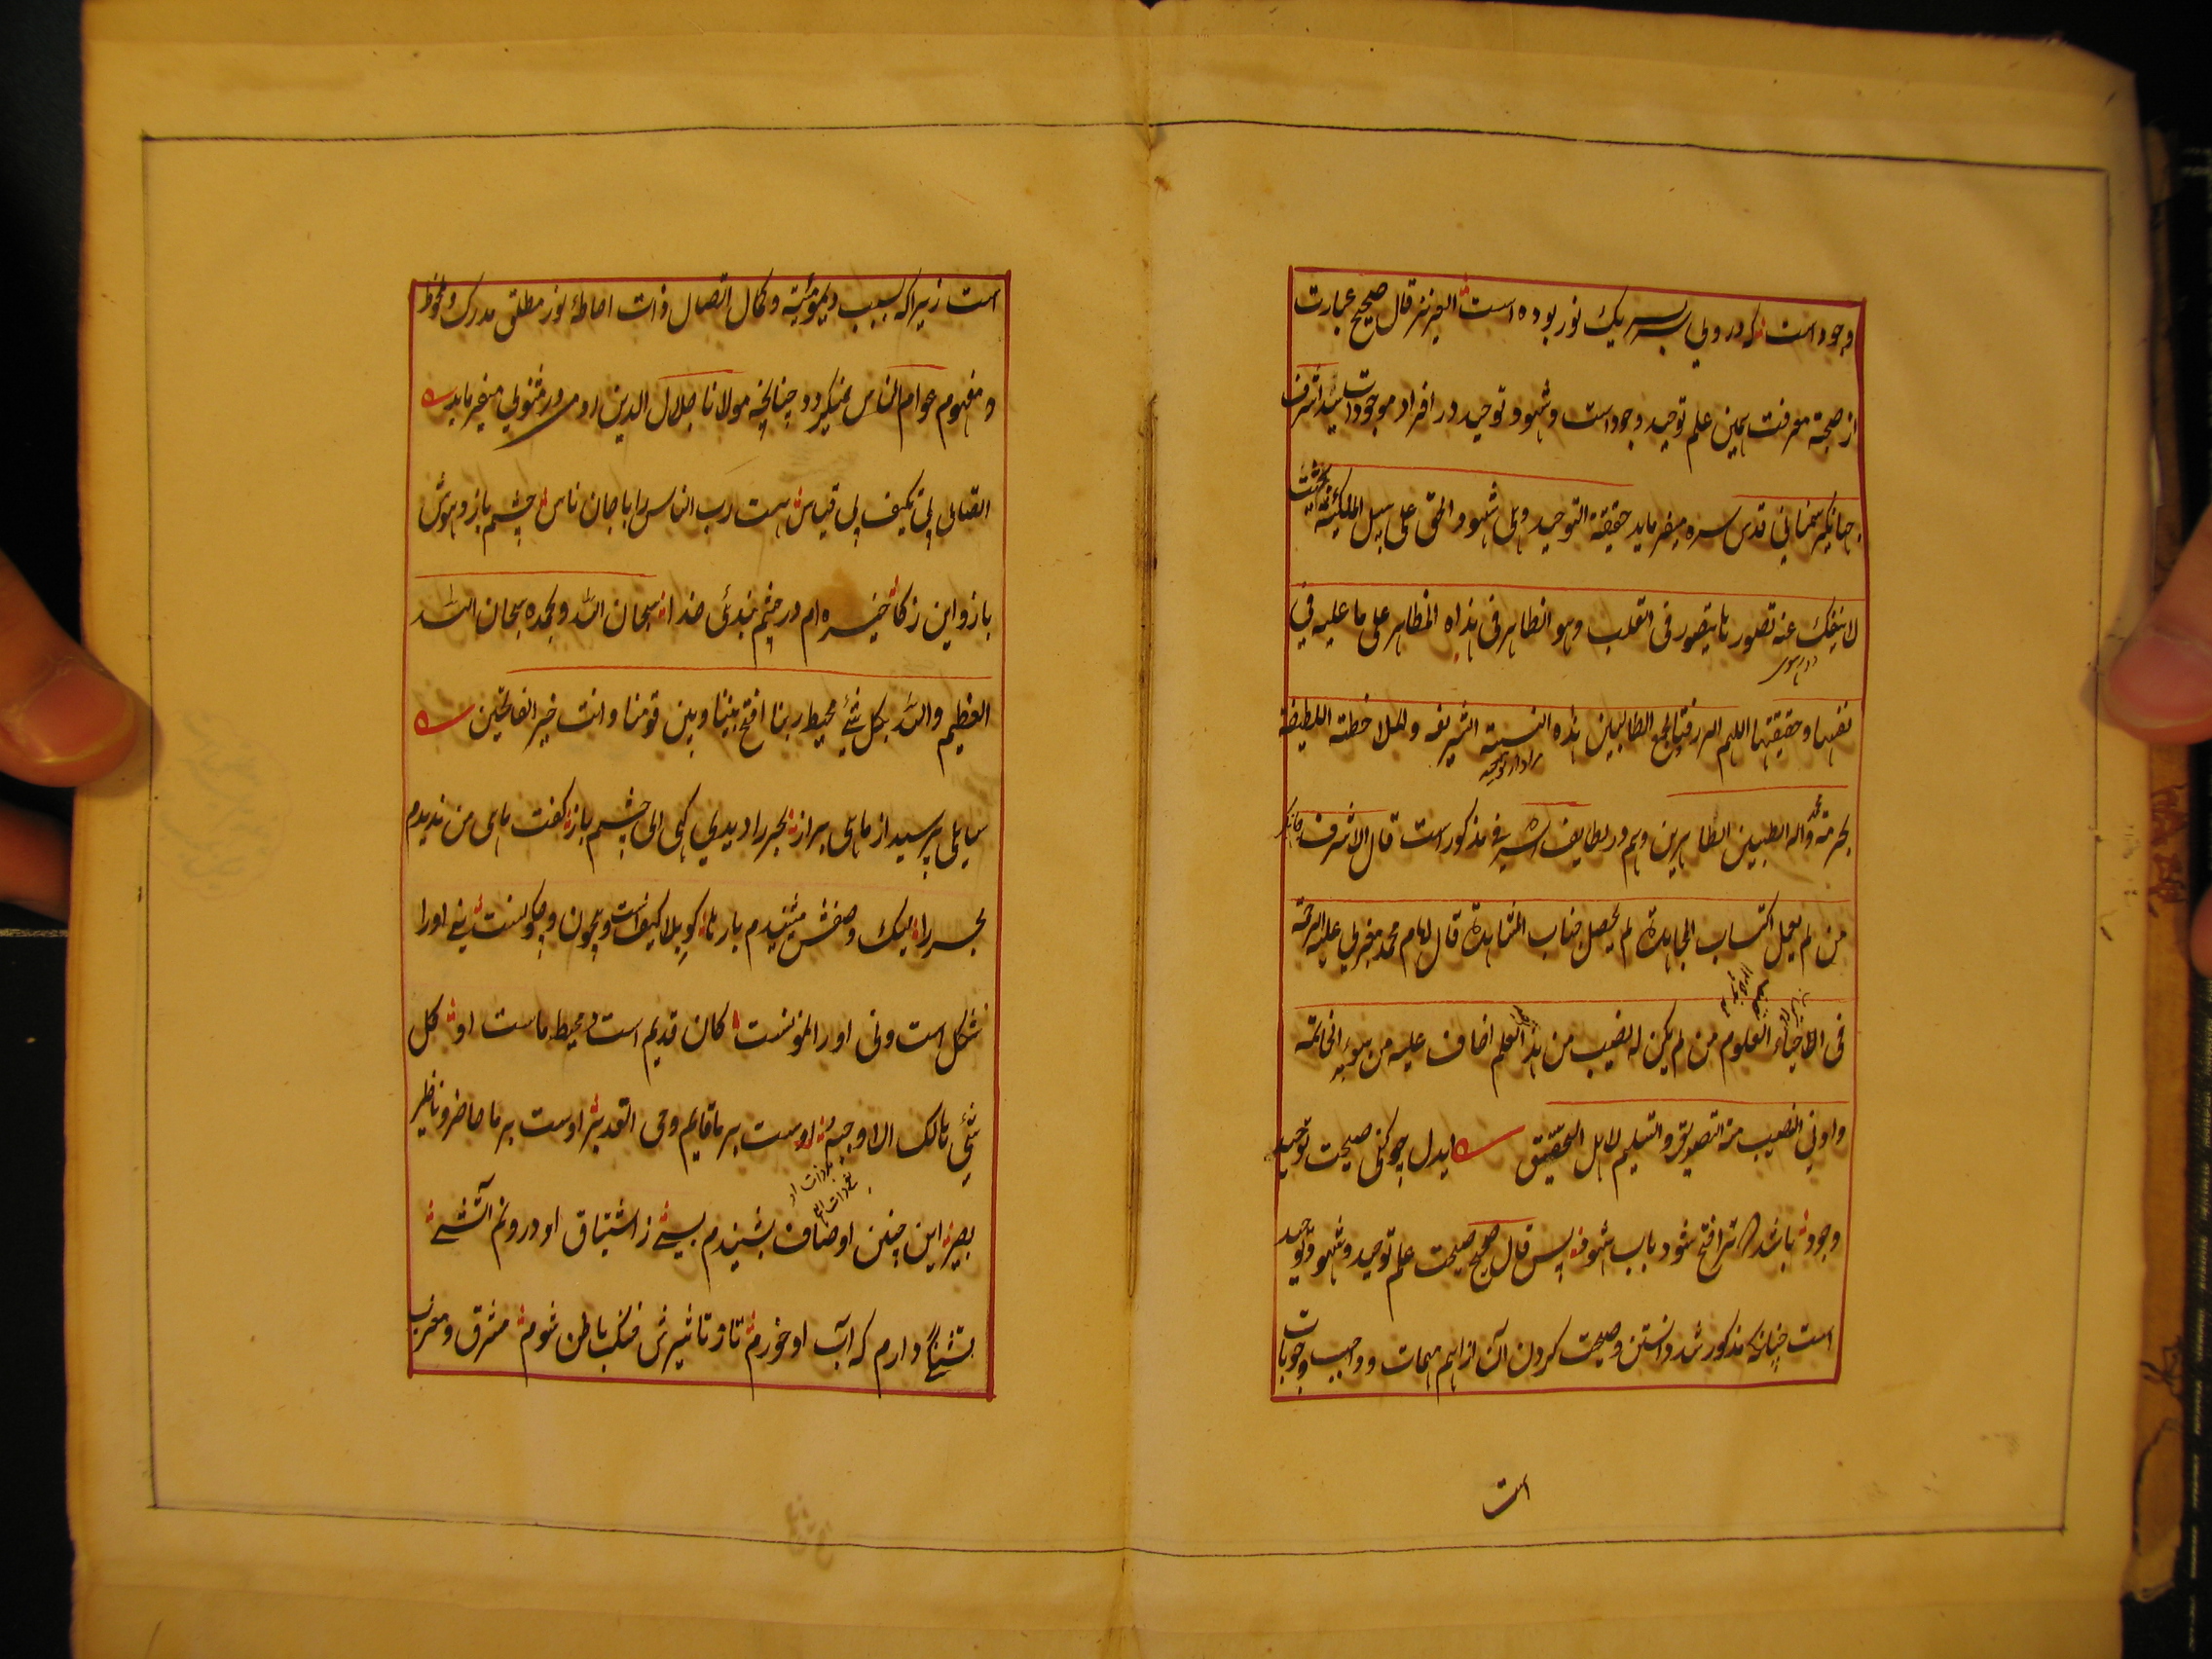 وجود است که در ولی بسر یک نور بوده است العزیز قال صحیح عبارت
از صحة معرفت بمین علم توحید وجود است وشهود توحید در افراد موجودات سید اشرف
جهانگیر سمنانی قدس سره میفرماید حقیقة التوحید وهی شهود الحق علی سبیل الملکیة بحیث
لا ینفک عنه تصور ما یتصور فی القلب وهو الظاهر فی هذاه المظاهر علی ما علیه فی
نفسها وحقیقتها اللهم الرزقنا لجمیع الطالبین هذه النسبته الشریفه والملاحظته اللطیفة
بحرمة محمد واله الطبیین الطاهرین وهم در لطایف اشرفی مذکور است قال الاشرف جهانگیر
من لم یعمل اکتساب المجاهدة لم یحصل جناب المشاهدة قال امام محمد غزالی علیه الرحمة
فی الاحیاء العلوم من لم یکن له نصیب من هذا العلم اخاف علیه من سوء الخاتمة
وادنی النصیب منه التصدیق والتسلیم لاهل التحقیق ایدل چو کنی صحیحت توحید
وجود باشد که ترا فتح شود باب شهود پس قال صحیح صحیحت علم توحید وشهود توحید
است چنانکه مذکور شد دانستن وصحیحت کردن آن از اهم مهمات وواجب وجوبات
است
است زیرا که بسبب دیمومیة وکمال اتصال ذات احاطهٔ نور مطلق مدرک وملحوظ
و مفهوم عوام الناس نمیگردد چنانچه مولانا جلال الدین رومی در مثنوی میفرماید
اتصالی بی تکیف بی قیاس هست رب الناس را با جان ناس چشم باز وگوش
باز واین زکا خیره ام در چشم بندئ خدا سبحان الله وبحمده سبحان الله
العظیم والله بکل شئ محیط ربنا افتح بیننا وبین قومنا وانت خیر الفاتحین
سایلی پرسید از ماهی براز بحر را دیدی کهی ای چشم باز گفت ماهی من ندیدم
بحر را لیک وصفش میشنیدم بارها کو بلا کیف است وبیچون وچگونست نی اورا
شکل است ونی اورا نمونست کان قدیم است ومحیط ماست او کل
شئ هالک الا وجهه اوست بر ما قایم وحی القدیر اوست بر ما حاضر وناظر
بصیر این چنین اوصاف بشنیدم بسی ز اشتیاق او درونم آتشی
تشنگی دارم که آب او خورم تا ز تاثیرش فنگ باطن شوم مشرق ومغرب